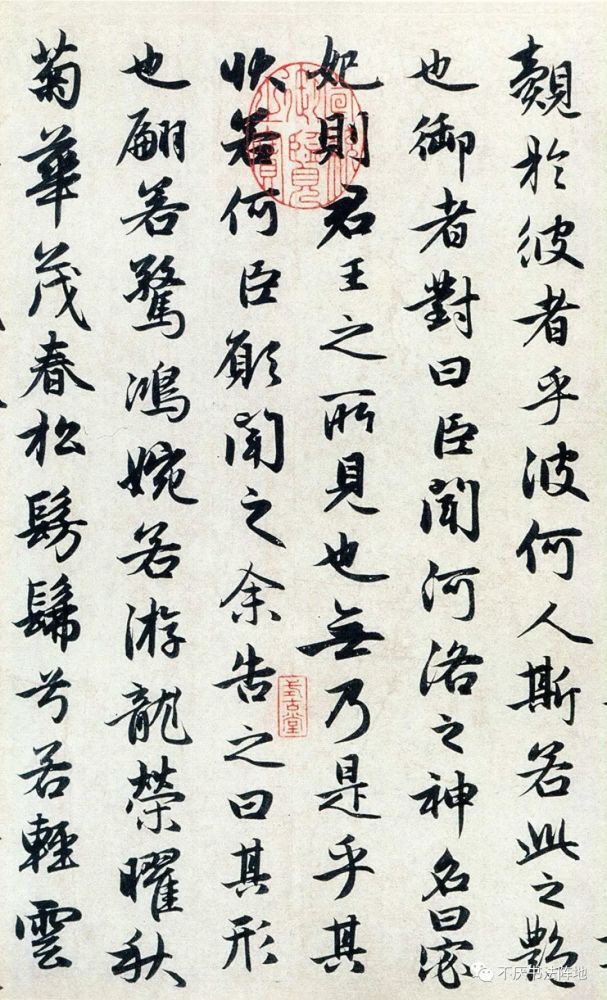 覿於彼者乎彼何人斯若此之艷
也御者對曰臣聞河洛之神名曰宓
妃則君王之所見也無乃是乎其
狀若何臣願聞之余告之曰其形
也翩若驚鴻婉若游龍榮曜秋
菊華茂春松髣髴兮若輕雲
式古堂
不厌书法阵地